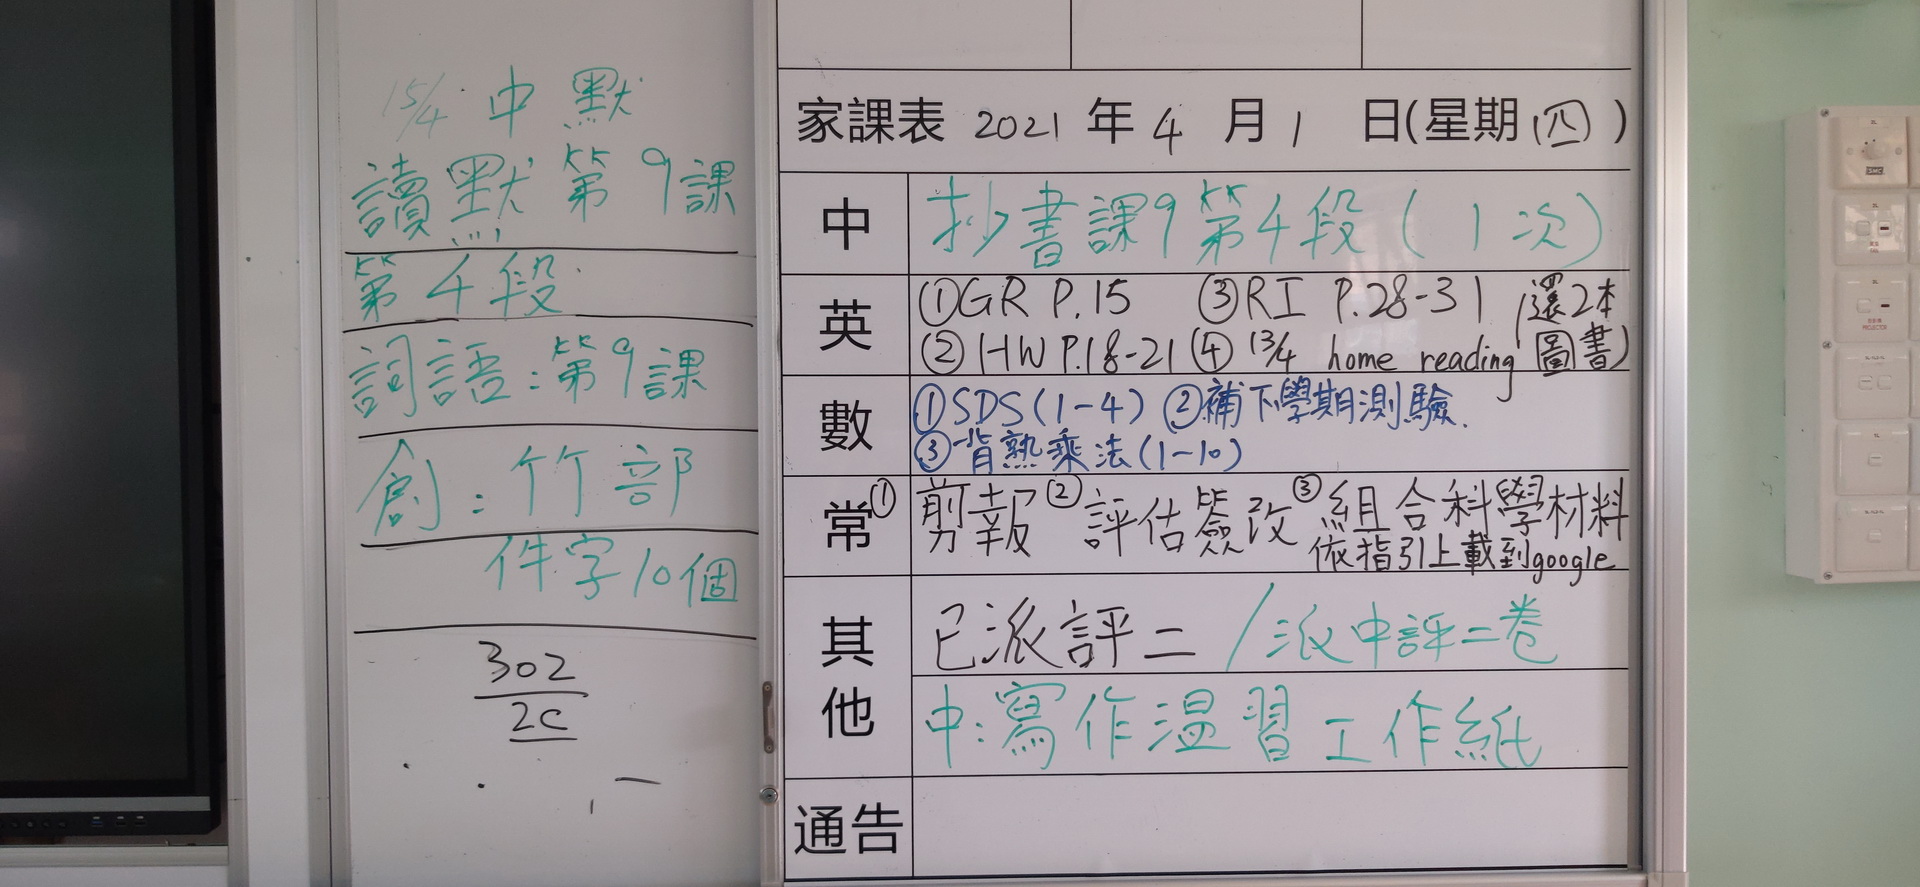 15/4 中默
讀默第9課
第4段
詞語：第9課
創：竹部
件字10個
302
2C
家課表 2021 年 4 月 1 日(星期 四 )
中 抄書課9第4段(1次)
英 ①GR P.15 ③RI P.28-31 (還2本
②HW P.18-21 ④13/4 home reading 圖書)
數 ①SDS(1-4) ②補下學期測驗.
③背熟乘法(1-10)
常 ①剪報 ②評估簽改 ③組合科學材料
依指引上載到google
其他 已派評二 / 派中評二卷
中:寫作溫習工作紙
通告